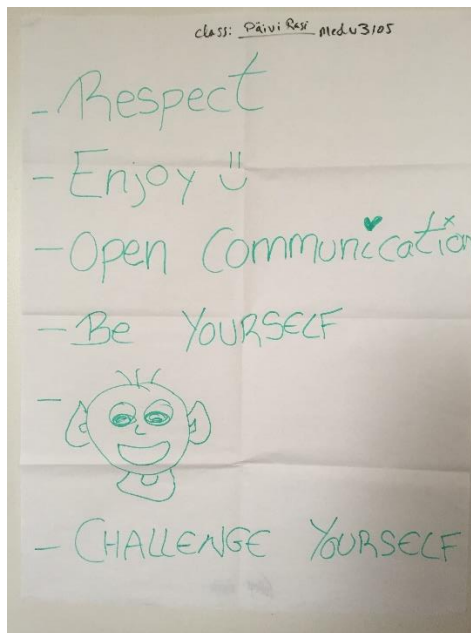 class: Päivi Rasi medu3105
- Respect
- Enjoy
- Open Communication
- Be YOURSELF
-
- CHALLENGE YOURSELF